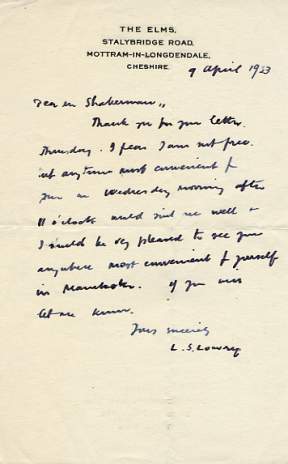 THE ELMS,
STALYBRIDGE ROAD,
MOTTRAM-IN-LONGDENDALE,
CHESHIRE.
9 April 1953
Dear
Thank you for your letter.
Thursday. I fear I am not free.
anytime most convenient f
on Wednesday morning after
11 o'clock would suit me well &
I should be very pleased to see you
anywhere most convenient f yourself
in Manchester. If you will
let me know.
Yours sincerely
L. S. Lowry